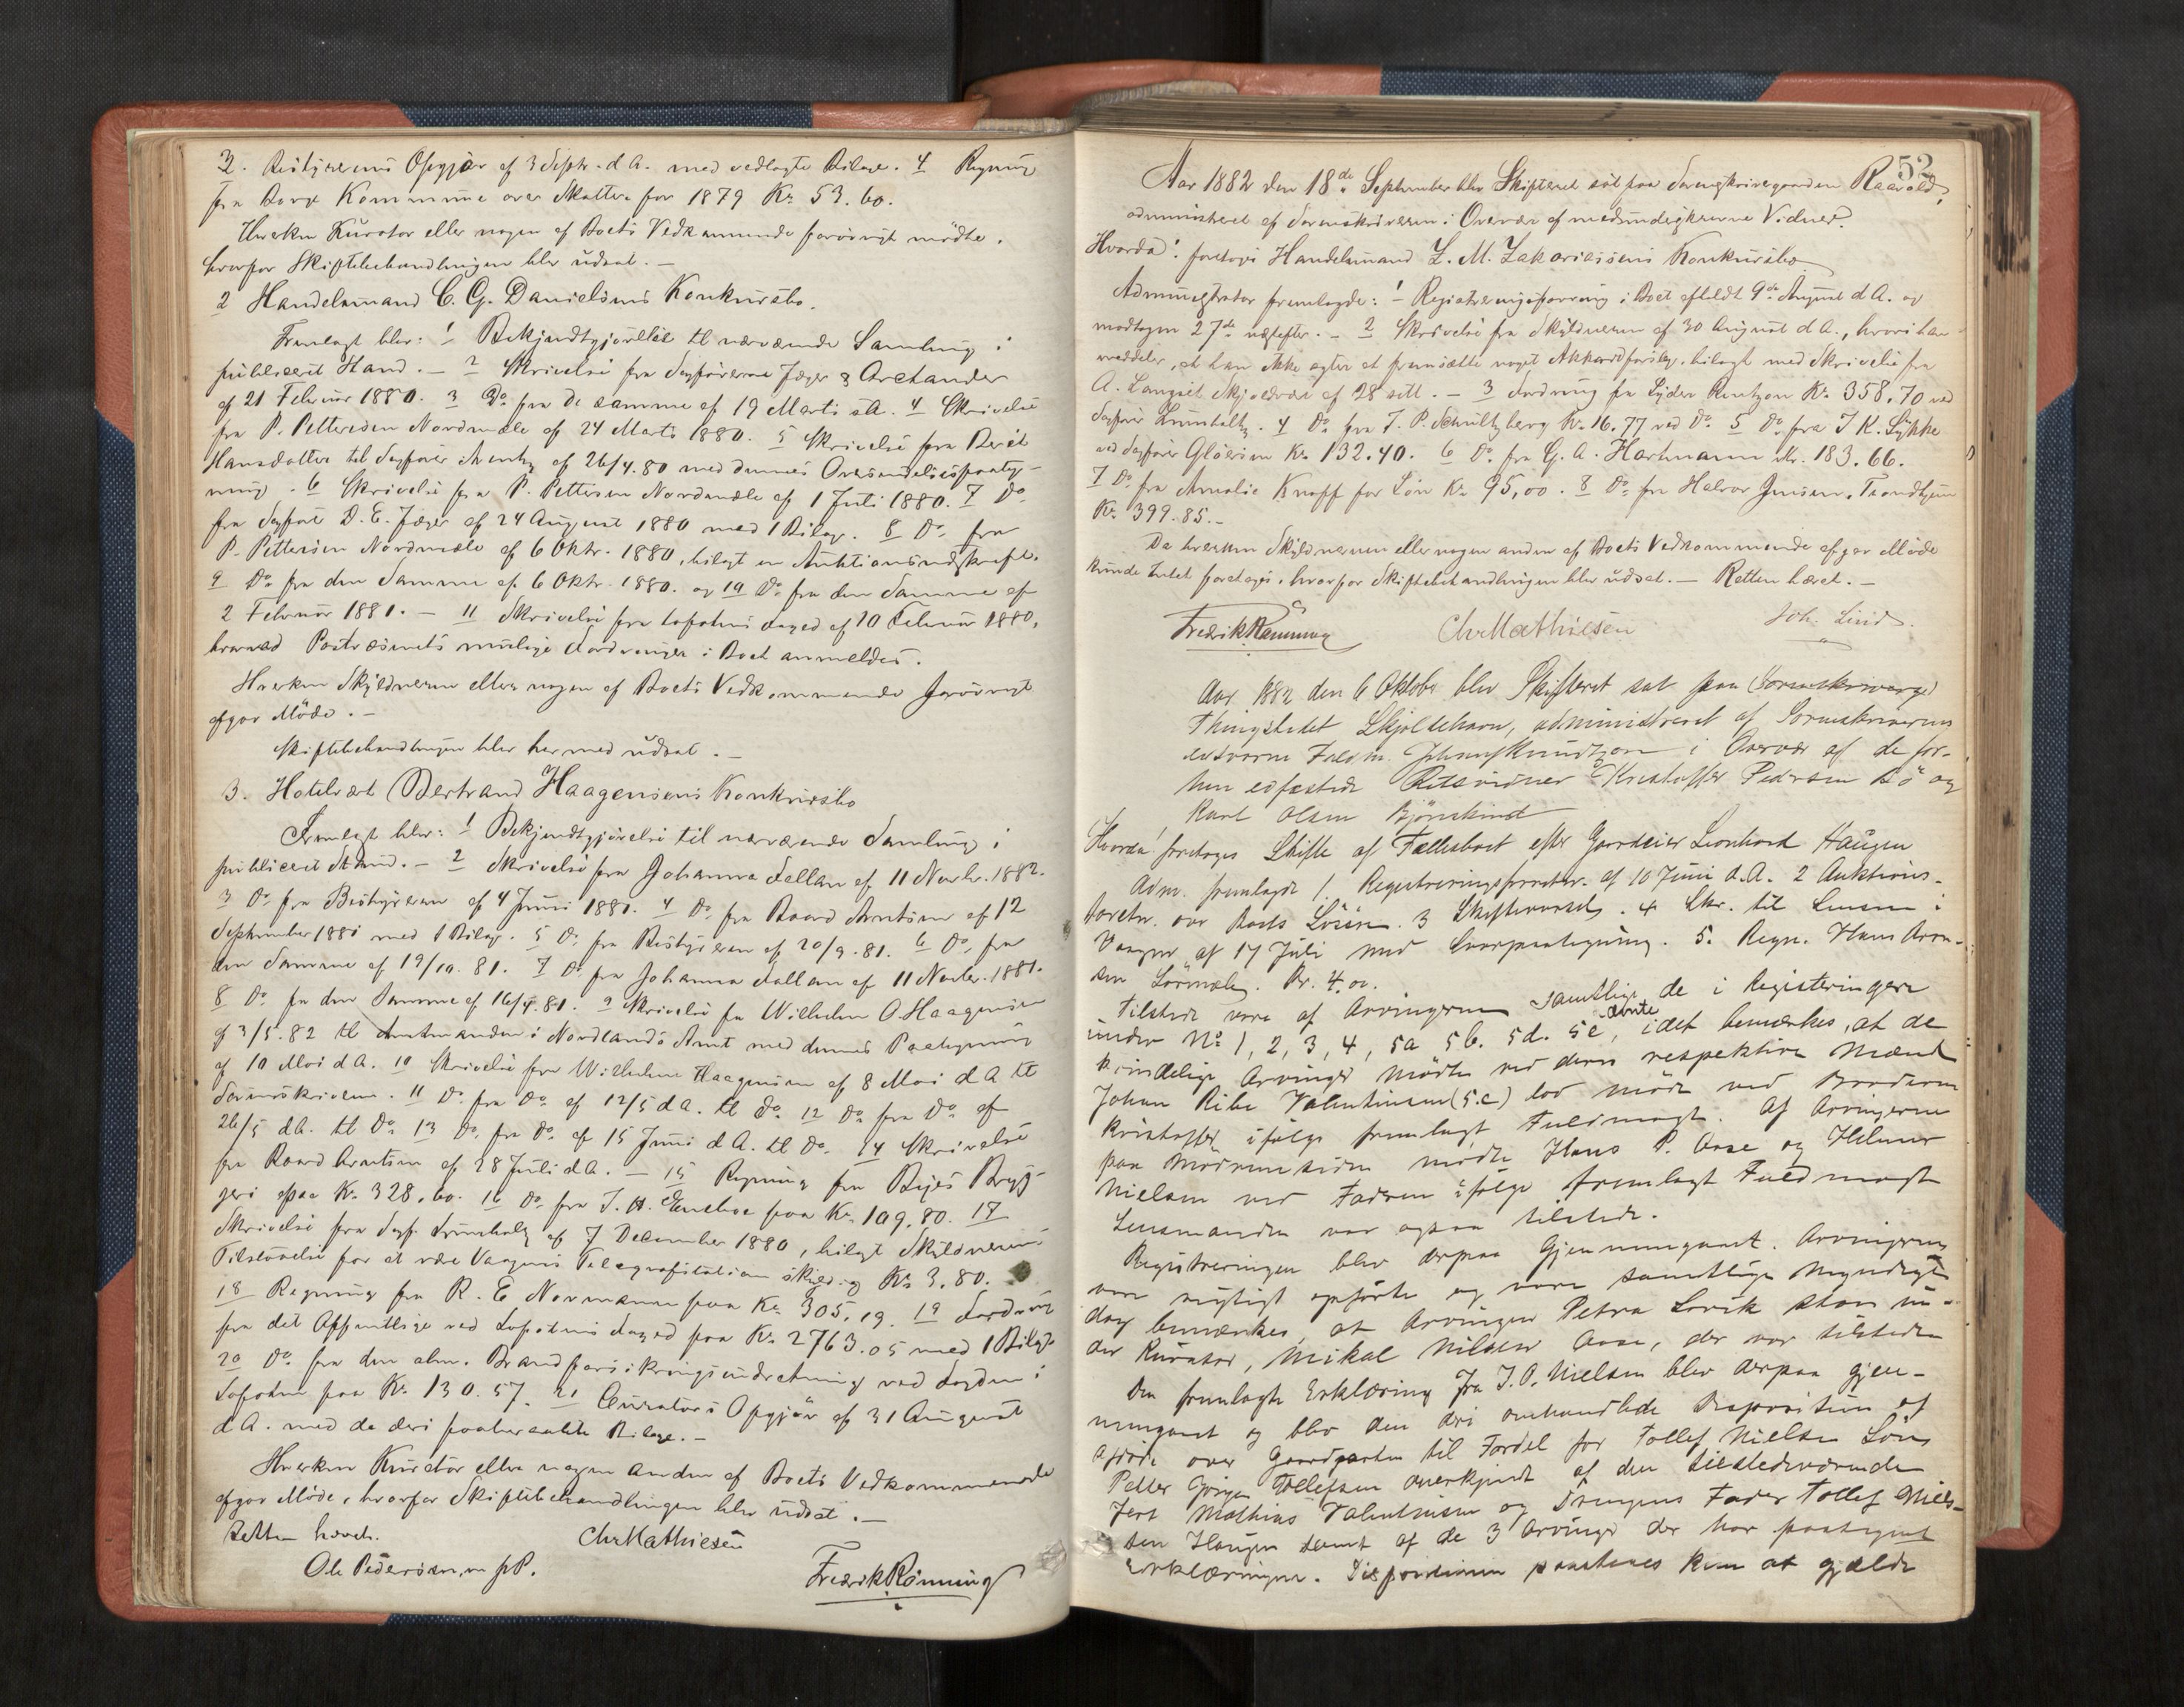 3. Bestyrerens Opgjør af 3 Septr. d A. med vedlagte Bilage. 4 Regning
fra Borge Kommune over Skatter for 1879 Kr. 53.60.
Hverken Kurator eller nogen af Boets Vedkommende forøvrigt mødte.
hvorfor Skiftebehandlingen blev udsat. —
2 Handelsmand C. G. Danielsens Konkursbo.
Fremlagt blev: 1 Bekjendtgjørelse til nærværende Samling i
publiceret Stand. — 2 Skrivelse fra Sagførerne Jæger & Arctander
af 21 Februar 1880. 3 Do fra de samme af 19 Marts s A. 4 Skrivelse
fra P. Pettersen Nordmæle af 24 Marts 1880. 5 Skrivelse fra Berit
Hansdatter til Sagfører af 26/4.80 med dennes Oversendelsespaateg-
ning. 6 Skrivelse fra P. Pettersen Nordmæle af 1 Juli 1880. 7 Do
fra Sagfører D. E. Jæger af 24 August 1880 med 1 Bilag. 8 Do fra
P. Pettersen Nordmæle af 6 Oktr. 1880, bilagt en Auktionsudskrift.
9 Do fra den Samme af 6 Oktr. 1880. og 10 Do fra den Samme af
2 Februar 1881. — 11 Skrivelse fra Lofotens Foged af 10 Februar 1880,
hvorved Postvæsenets mulige Fordringer i Boet anmeldes.
Hverken Skyldneren eller nogen af Boets Vedkommende forøvrigt
afgav Møde. —
Skiftebehandlingen blev hermed udsat. —
3. Hotelvært Bertrand Haagensens Konkursbo
Fremlagt blev: 1 Bekjendtgjørelse til nærværende Samling i
publiceret Stand. — 2 Skrivelse fra Johanna Fallan af 11 Novbr. 1882.
3 Do fra Bestyreren af 4 Juni 1881. 4 Do fra Baard Arntsen af 12
September 1881 med 1 Bilag. 5 Do fra Bestyreren af 20/9.81. 6 Do fra
den Samme af 19/10.81. 7 Do fra Johanna Fallan af 11 Novbr. 1881.
8 Do fra den Samme af 16/4.81. 9 Skrivelse fra Wilhelm O. Haagensen
af 3/5.82 til Amtmanden i Nordlands Amt med dennes Paategning
af 10 Mai d A. 10 Skrivelse fra Wilhelm Haagensen af 8 Mai d A til
Sorenskriveren. 11 Do fra Do af 12/5 d A. til Do 12 Do fra Do af
26/5 d A. til Do 13 Do fra Do af 15 Juni d A. til Do. 14 Skrivelse
fra Baard Arntsen af 28 Juli d A. — 15 Regning fra Byes Bryg-
geri paa Kr. 328.60. 16 Do fra J. H. paa Kr. 109.80. 17
Skrivelse fra Sagf. Lumholtz af 7 December 1880, bilagt Skyldnerens
Tilstaaelse for at være Vaagens Telegrafstation skyldig Kr. 3.80.
18 Regning fra R. E Normann paa Kr. 305,19. 19 Fordring
fra det Offentlige ved Lofotens Foged paa Kr. 2763.05 med 1 Bilag
20 Do fra den alm. Brandforsikringsindretning ved Fogden i
Lofoten paa Kr. 130.57. 21 Curators Opgjør af 31 August
d A. med de deri paaberaabte Bilage. —
Hverken Kurator eller nogen anden af Boets Vedkommende
afgav Møde, hvorfor Skiftebehandlingen blev udsat. —
Retten hævet.
Chr Mathiesen
Ole Pedersen, m p P.
Fredrik Rønning
52
Aar 1882 den 18de September blev Skifteret sat paa Sorenskrivergaarden Raavold,
administreret af Sorenskriveren i Overvær af medundertegnende Vidner.
Hvorda: foretoges Handelsmand L. M. Zakariassens Konkursbo
Administrator fremlagde: 1 Registreringsforretning i Boet afholdt 9de August d A. og
modtagen 27de næstefter. — 2 Skrivelse fra Skyldneren af 30 August d A., hvori han
meddeler, at han ikke agter at fremsætte noget Akkordforslag, bilagt med Skrivelse fra
A. Langset Skjælvær af 28 s. — 3 Fordring fra Lyder Rentzon Kr. 358,70 ved
Sagfører Lumholtz. 4 Do fra J. P. Schultzberg Kr. 16.77 ved Do 5 Do fra J K. Lykke
ved Sagfører Gløersen Kr. 132.40. 6 Do fra G. A. Hartmann Kr. 183.66.
7 Do fra Amalie Knoff for Løn Kr. 95,00. 8 Do fra Halvor Jensen, Trondhjem
Kr. 399.85. —
Da hverken Skyldneren eller nogen anden af Boets Vedkommende afgav Møde
kunde Intet foretages, hvorfor Skiftebehandlingen blev udsat. — Retten hævet. —
Fredrik Rønning
Chr Mathiesen
Joh. Lind.
Aar 1882 den 6 Oktober blev Skifteret sat paa (Sorenskriverge)
Thingstedet Skjoldehavn, administreret af Sorenskriverens
edsvorne Fuldm. Johan Knudtzon i Overvær af de for-
hen edfæstede Retsvidner Kristoffer Pedersen Bø og
Karl Olsen Bjørnskind
Hvorda! foretoges Skifte af Fællesboet efter Gaardeier Leonhard Haugen
Adm. fremlagde 1. Registreringsforretn. af 10 Juni d.A. 2 Auktions-
forretn. over Boets Løsøre. 3 Skiftevarsel. 4 Skr. til Lensm. i
Vaagen af 17 Juli med Svarpaategning. 5. Regn. Hans Aron-
sen Sørmæle. Kr. 4.00.
Tilstede vare af Arvingerne samtlige de i Registeringen
under No 1, 2, 3, 4, 5a 5b. 5d. 5e, nævnte idet bemærkes, at de
kvindelige Arvinger mødte ved deres respektive Mænd
Johan Ribe Valentinsen (5.c) lod møde ved Broderen
Kristoffer ifølge fremlagt Fuldmagt. Af Arvingerne
paa Mødrenesiden mødte Hans P. Aase og Hilmer
Nielsen ved Faderen ifølge fremlagt Fuldmagt
Lensmanden var ogsaa tilstede.
Registreringen blev derpaa Gjennemgaaet. Arvingerne
vare rigtigt opførte og vare samtlige Myndige
dog bemærkes, at Arvingen Petra Lovik staar un-
der Kurator, Mikal Nilsen Aase, der var tilstede
Den fremlagte Erklæring fra J. O. Nielsen blev derpaa gjen-
nemgaaet og blev den deri omhandlede Disposition af
afdøde over Gaardparten til Fordel for Tollef Nielsens Søn
Petter Gørgen Tollefsen anerkjendt af den tilstedeværende
Jert Mathias Valentinsen og Drengens Fader Tollef Niel-
sen Haugen samt af de 3 Arvinger der har paategnet
Erklæringen. Dispositionen paastaaes kun at gjælde